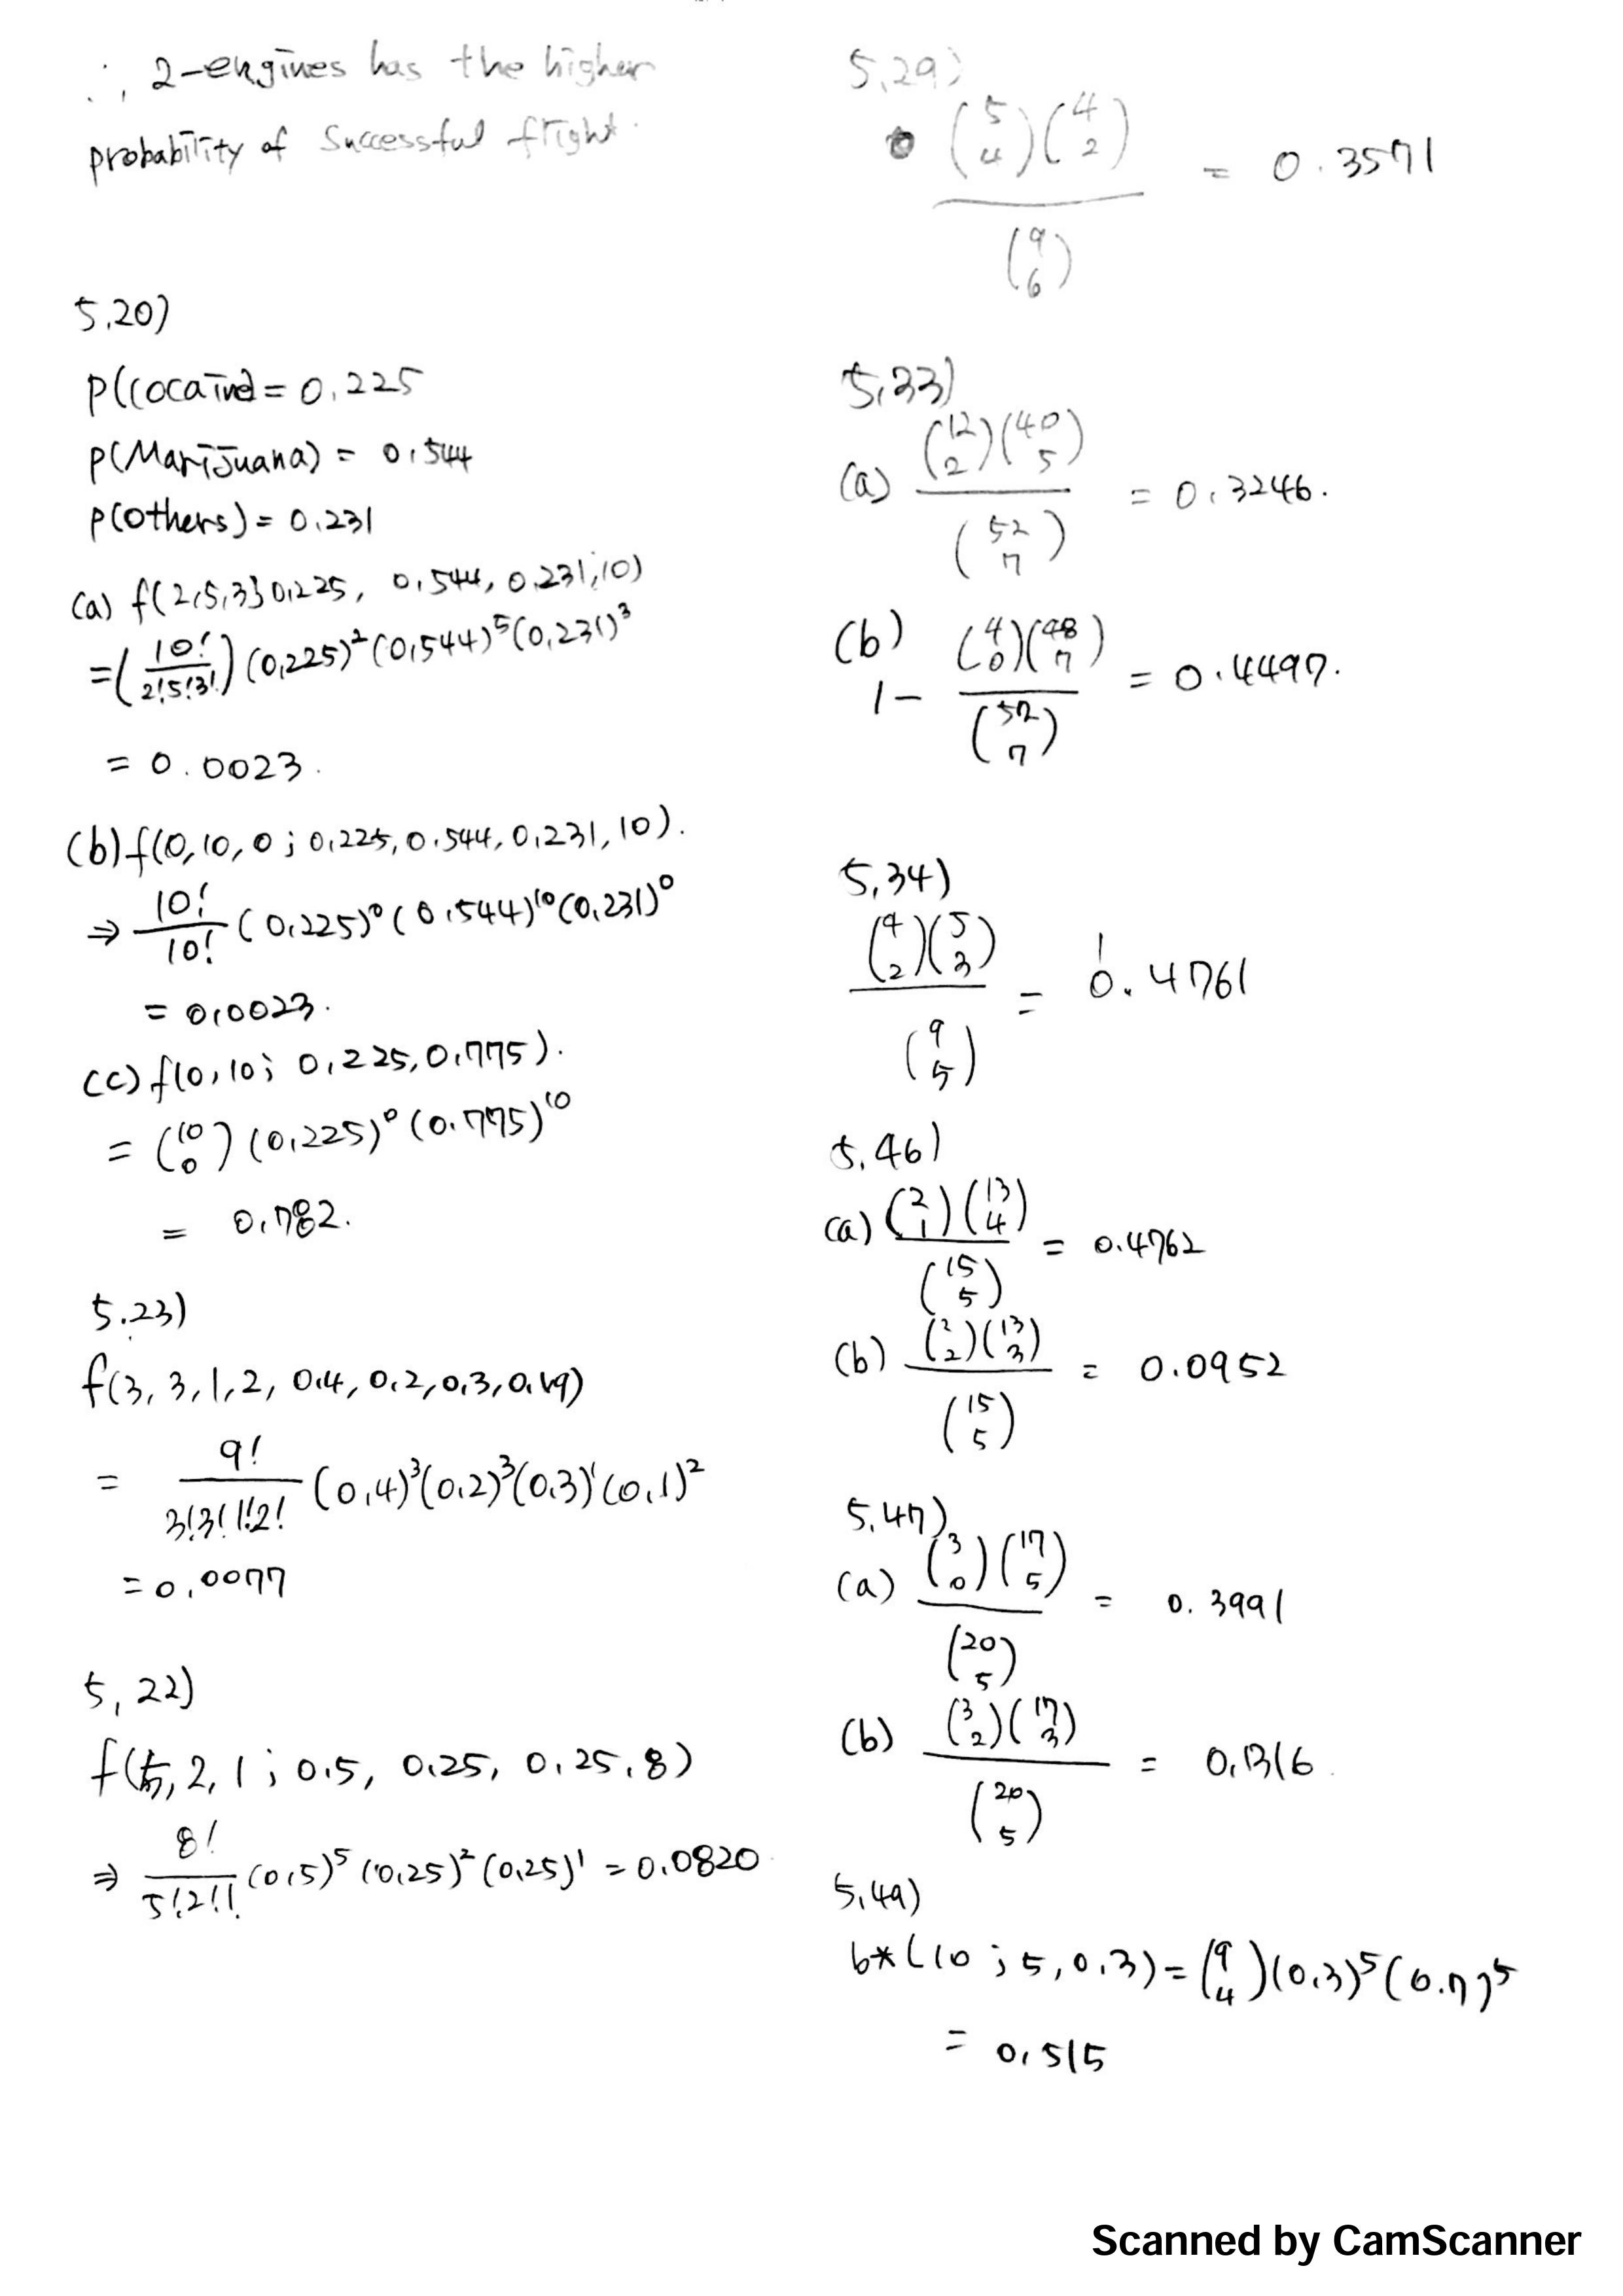 ∴ 2-engines has the higher
probability of Successful flight.
5.20)
P(cocaine) = 0.225
P(Marijuana) = 0.544
P(others) = 0.231
(a) f(2,5,3; 0.225, 0.544, 0.231, 10)
= (10!/2!5!3!) (0.225)² (0.544)⁵ (0.231)³
= 0.0023.
(b) f(0, 10, 0 ; 0.225, 0.544, 0.231, 10).
⇒ 10!/10! (0.225)⁰ (0.544)¹⁰ (0.231)⁰
= 0.0023.
(c) f(0, 10; 0.225, 0.775).
= (10 0) (0.225)⁰ (0.775)¹⁰
= 0.782.
5.23)
f(3, 3, 1, 2, 0.4, 0.2, 0.3, 0.1, 9)
= 9!/3!3!1!2! (0.4)³ (0.2)³ (0.3)¹ (0.1)²
= 0.0077
5.22)
f(5, 2, 1 ; 0.5, 0.25, 0.25, 8)
⇒ 8!/5!2!1! (0.5)⁵ (0.25)² (0.25)¹ = 0.0820
5.29)
(5 4)(4 2)/(9 6) = 0.3571
5.33)
(a) (12 2)(40 5)/(52 7) = 0.3246.
(b) 1 - (4 0)(48 7)/(52 7) = 0.4497.
5.34)
(4 2)(5 3)/(9 5) = 0.4761
5.46)
(a) (2 1)(13 4)/(15 5) = 0.4762
(b) (2 2)(13 3)/(15 5) = 0.0952
5.47)
(a) (3 0)(17 5)/(20 5) = 0.3991
(b) (3 2)(17 3)/(20 5) = 0.1316
5.49)
b*(10 ; 5, 0.3) = (9 4)(0.3)⁵ (0.7)⁵
= 0.515
Scanned by CamScanner